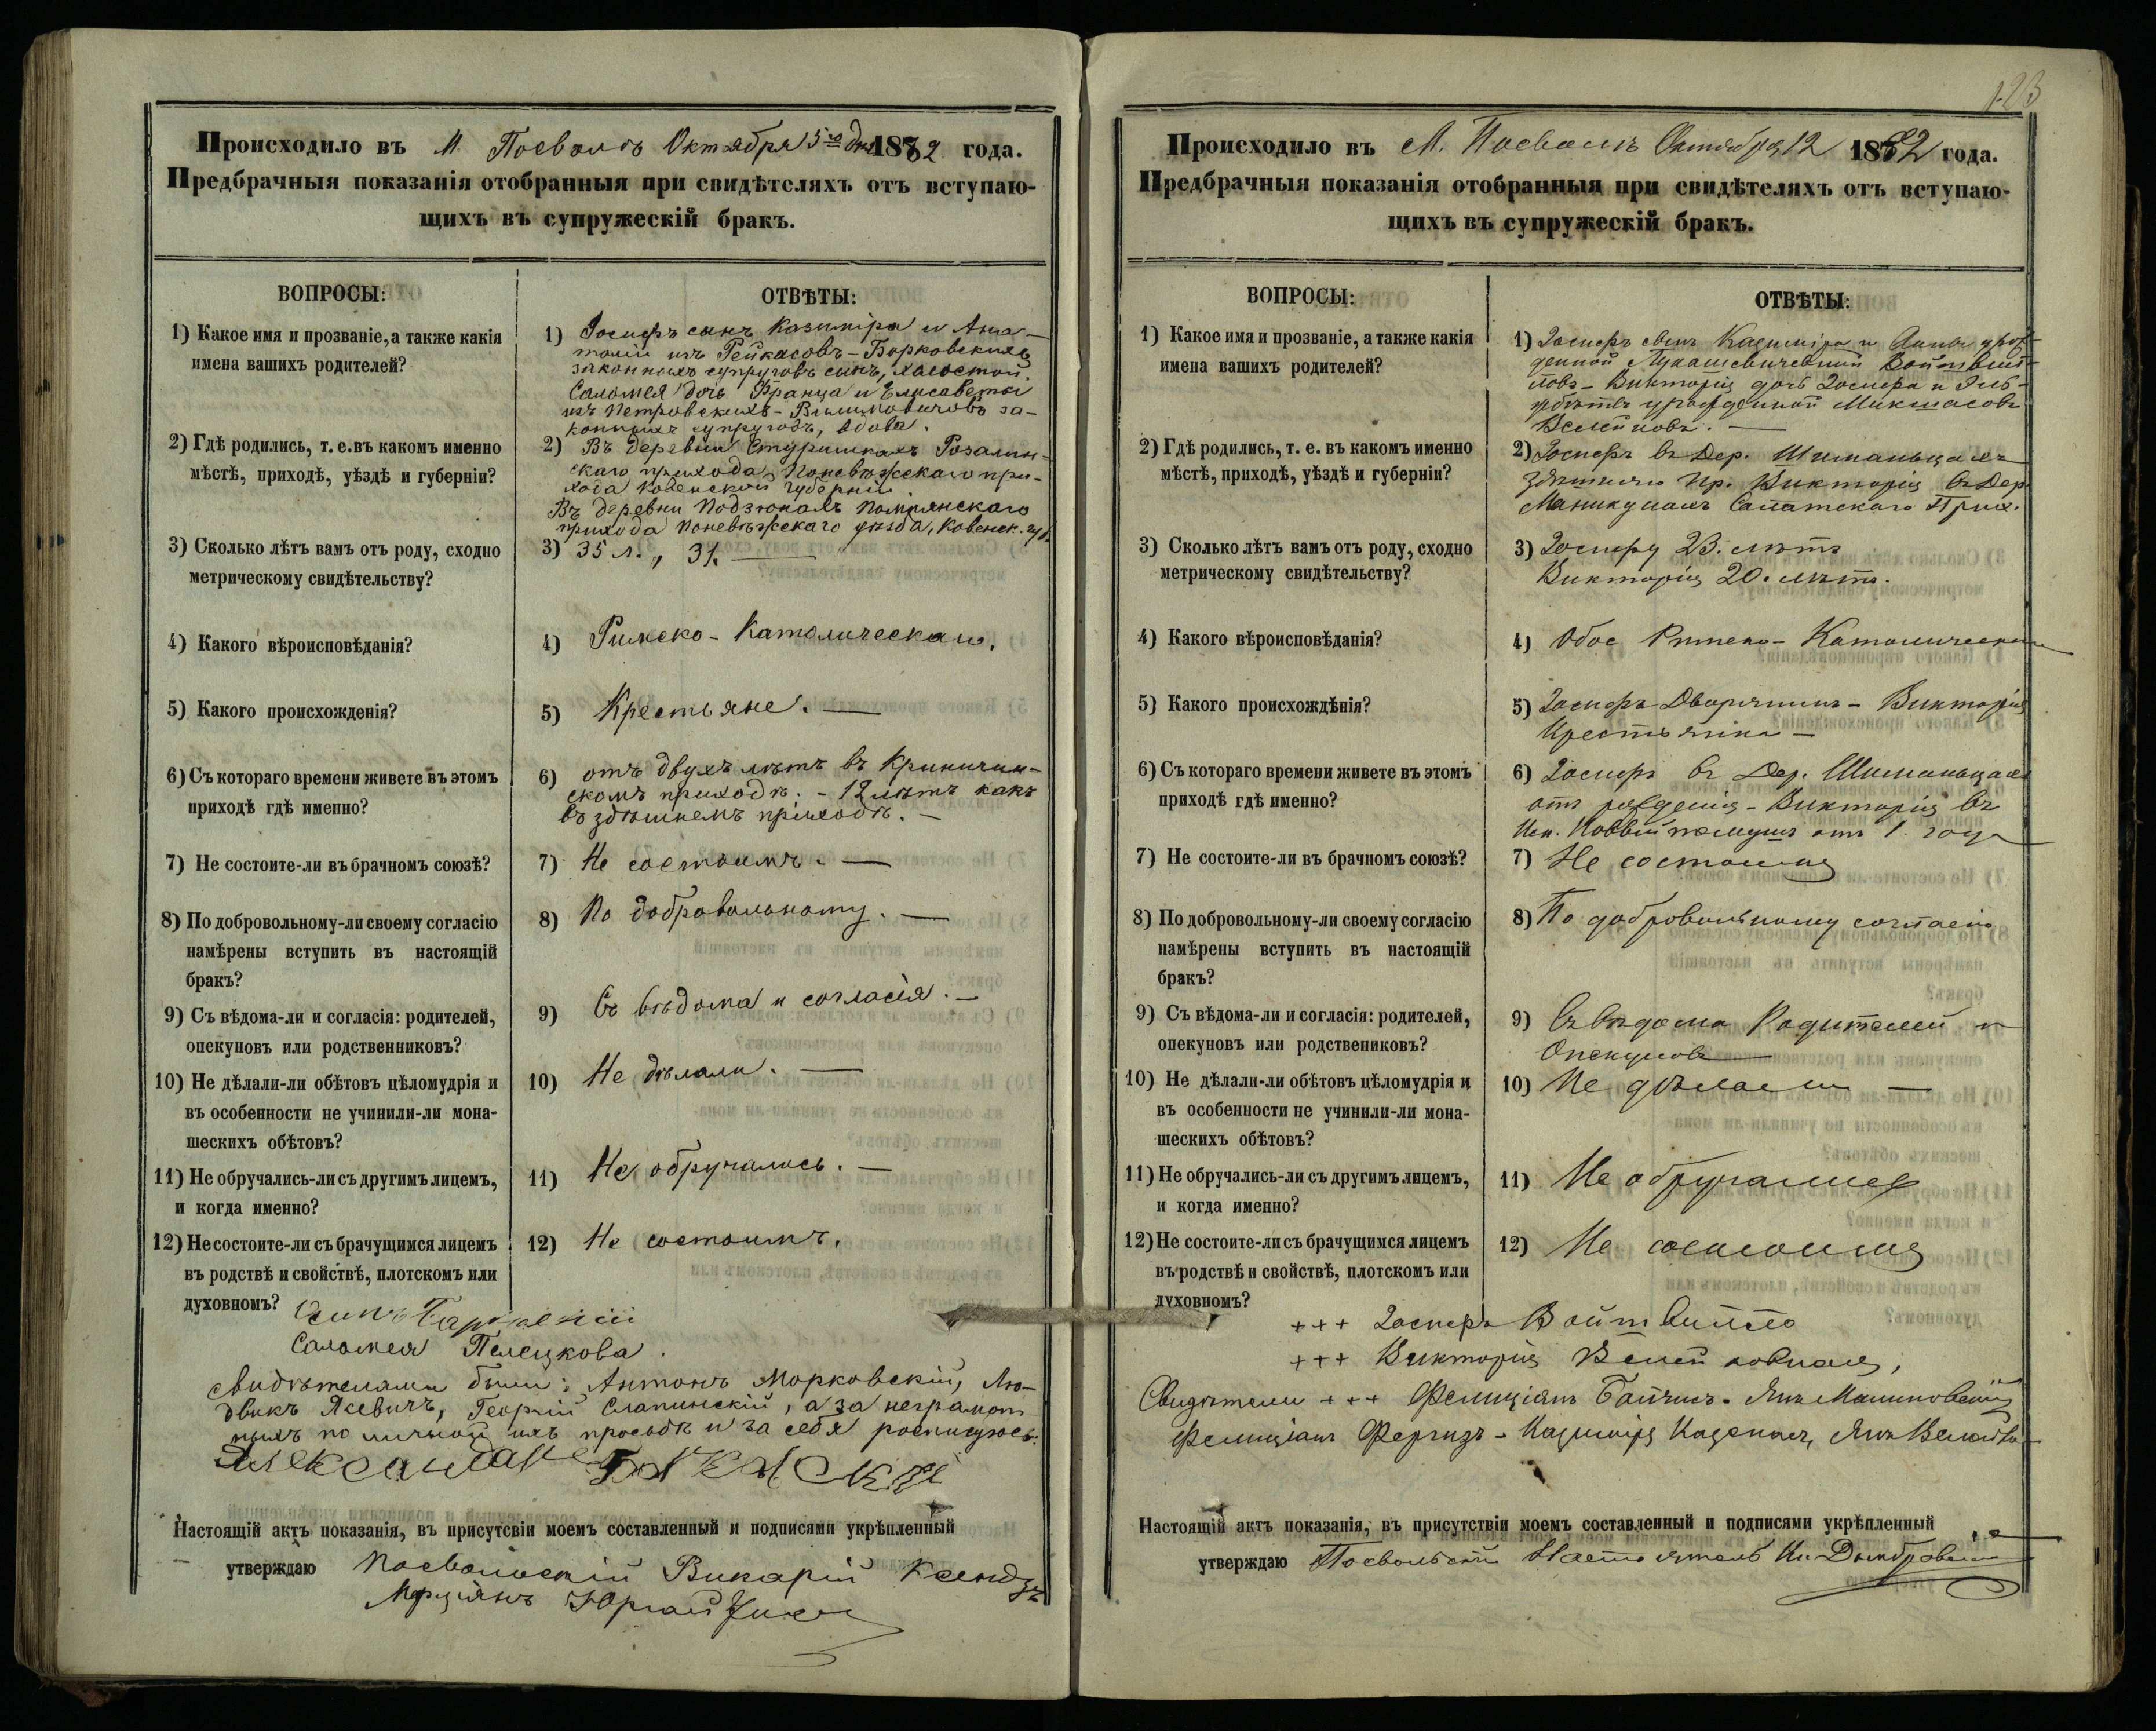 Происходило въ М. Посволь Октября 5го дня 1882 года.
Предбрачныя показанія отобранныя при свидѣтеляхъ отъ вступаю-
щихъ въ супружескій бракъ.
ВОПРОСЫ:
ОТВѢТЫ:
1) Какое имя и прозваніе, а также какія
имена вашихъ родителей?
1) Іосифъ сынъ Казиміра и Ана-
толіи изъ Рейкасовъ-Борковскихъ
законныхъ супруговъ сынъ, холостой.
Саломея дочь Франца и Елисаветы
изъ Петровскихъ- за-
конныхъ супруговъ, вдова.
2) Гдѣ родились, т. е. въ какомъ именно
мѣстѣ, приходѣ, уѣздѣ и губерніи?
2) Въ деревни Стуришкахъ Розалин-
скаго прихода, Поневѣжскаго при-
хода Ковенской губерніи
Въ деревни Подзюнахъ Помпянскаго
прихода Поневѣжскаго уѣзда, Ковенск. губ.
3) Сколько лѣтъ вамъ отъ роду, сходно
метрическому свидѣтельству?
3) 35 л., 31. —
4) Какого вѣроисповѣданія?
4) Римско-Католическаго.
5) Какого происхожденія?
5) Крестьяне. —
6) Съ котораго времени живете въ этомъ
приходѣ гдѣ именно?
6) отъ двухъ лѣтъ въ Криничин-
скомъ приходѣ. - 12 лѣтъ какъ
въ здѣшнемъ приходѣ. —
7) Не состоите-ли въ брачномъ союзѣ?
7) Не состоимъ. —
8) По добровольному-ли своему согласію
намѣрены вступить въ настоящій
бракъ?
8) По добровольному. —
9) Съ вѣдома-ли и согласія: родителей,
опекуновъ или родственниковъ?
9) Съ вѣдома и согласія. —
10) Не дѣлали-ли обѣтовъ цѣломудрія и
въ особенности не учинили-ли мона-
шескихъ обѣтовъ?
10) Не дѣлали. —
11) Не обручались-ли съ другимъ лицемъ,
и когда именно?
11) Не обручались. —
12) Не состоите-ли съ брачущимся лицемъ
въ родствѣ и свойствѣ, плотскомъ или
духовномъ?
12) Не состоимъ.
Саломея Пелецкова.
свидѣтелями были: Антонъ Морковскій, Лю-
двикъ Ясевичъ, Георгій Слапинскій, а за неграмот
ныхъ по личной ихъ просьбѣ и за себя росписуюсь:
Настоящій актъ показанія, въ присутсвіи моемъ составленный и подписями укрѣпленный
утверждаю Посвольскій Викарій Ксендзъ
123
Происходило въ М. Посволь Октября 12 1882 года.
Предбрачныя показанія отобранныя при свидѣтеляхъ отъ вступаю-
щихъ въ супружескій бракъ.
ВОПРОСЫ:
ОТВѢТЫ:
1) Какое имя и прозваніе, а также какія
имена вашихъ родителей?
1) Іосифъ сынъ Казиміра и Анны урож-
денной Лукашевичевной Войтвил-
ловъ - Викторія дочь Іосифа и Ели-
урожденной Микшасовъ
2) Гдѣ родились, т. е. въ какомъ именно
мѣстѣ, приходѣ, уѣздѣ и губерніи?
2) Іосифъ въ Дер. Шиманьцахъ
здѣшняго Пр. Викторія въ Дер.
Маникунахъ Салатскаго Прих.
3) Сколько лѣтъ вамъ отъ роду, сходно
метрическому свидѣтельству?
3) Іосифу 23. лѣтъ
Викторія 20. лѣтъ.
4) Какого вѣроисповѣданія?
4) Обое Римско-Католическаго
5) Какого происхождѣнія?
5) Іосифъ Дворянинъ - Викторія
Крестьянка —
6) Съ котораго времени живете въ этомъ
приходѣ гдѣ именно?
6) Іосифъ въ Дер. Шиманьцахъ
отъ рожденія - Викторія въ
отъ 1. года
7) Не состоите-ли въ брачномъ союзѣ?
7) Не состоимъ
8) По добровольному-ли своему согласію
намѣрены вступить въ настоящій
бракъ?
8) По добровольному согласію
9) Съ вѣдома-ли и согласія: родителей,
опекуновъ или родствениковъ?
9) Съ вѣдома Родителей и
Опекуновъ —
10) Не дѣлали-ли обѣтовъ цѣломудрія и
въ особенности не учинили-ли мона-
шескихъ обѣтовъ?
10) Не дѣлали —
11) Не обручались-ли съ другимъ лицемъ,
и когда именно?
11) Не обручались
12) Не состоите-ли съ брачущимся лицемъ
въ родствѣ и свойствѣ, плотскомъ или
духовномъ?
12) Не состоимъ
+++ Іосифъ Войтвилло
+++ Викторія
Свидѣтели +++ Фелиціянъ Янъ Малиновскій
Фелиціянъ Казиміръ Янъ
Настоящій актъ показанія, въ присутствіи моемъ составленный и подписями укрѣпленный
утверждаю Посвольскій Настоятель Кс. Домбровскій